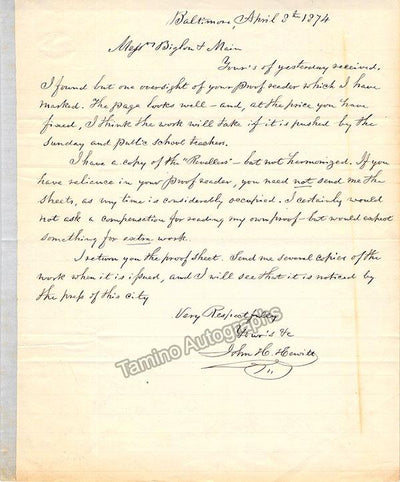 Baltimore, April 9th 1874
Messrs Biglow & Main
Your's of yesterday received.
I found but one oversight of your proof reader which I have
marked. The page looks well – and, at the price you have
fixed, I think the work will take if it is pushed by the
sunday and public school teachers.
I have a copy of the " – but not harmonized. If you
have reliance in your proof reader, you need not send me the
sheets, as my time is considerably occupied. I certainly would
not ask a compensation for reading my own proof – but would expect
something for extra work.
I return you the proof sheet. Send me several copies of the
work when it is issued, and I will see that it is noticed by
the press of this city
Very Respectfully
Your's &c
John H. Hewitt
Tamino Autographs